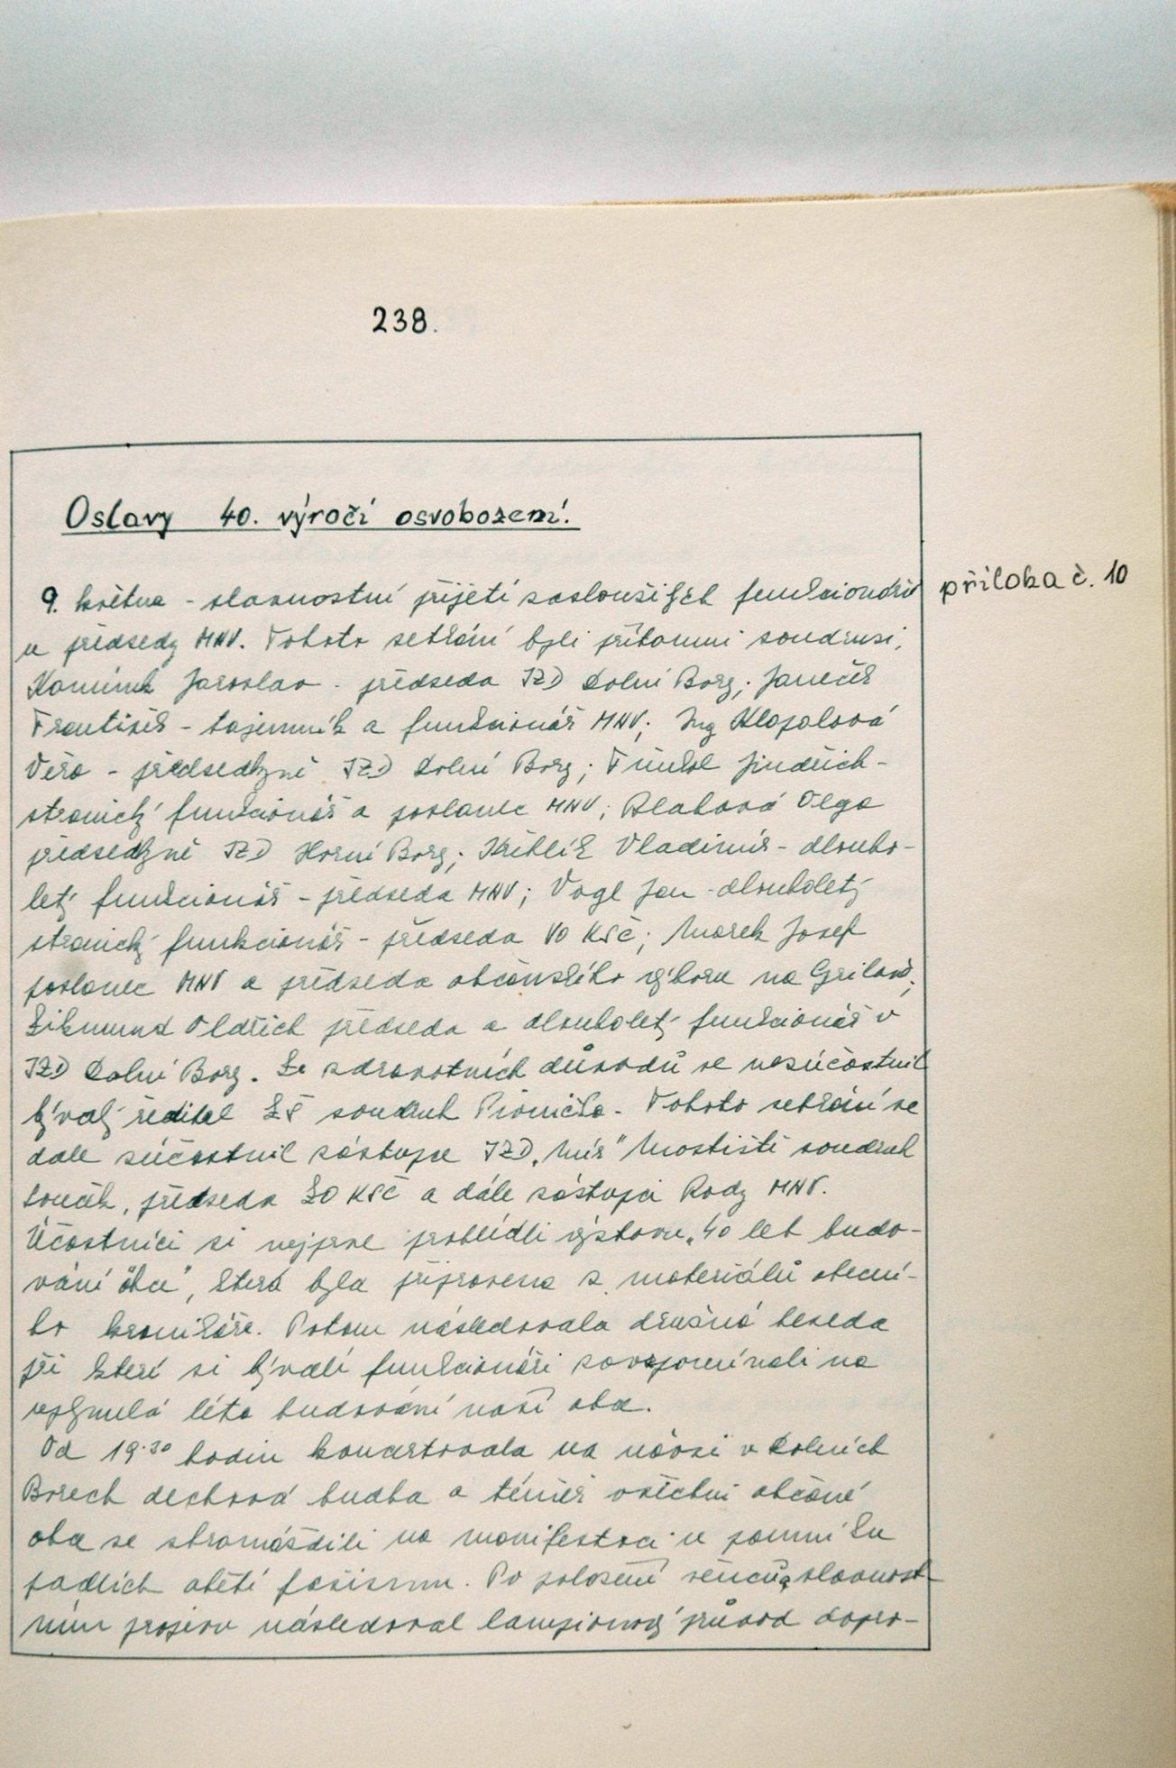 238.
Oslavy 40. výročí osvobození.
9. května - slavnostní přijetí zasloužilých funkcionářů
příloha č. 10
u předsedy MNV. Tohoto setkání byli přítomni soudruzi,
Kamínek Jaroslav - předseda JZD Dolní Bory; Janeček
František - tajemník a funkcionář MNV; Ing Klapalová
Věra - předsedkyně JZD Dolní Bory; Jindřich -
stranický funkcionář a poslanec MNV; Blahová Olga
předsedkyně JZD Horní Bory; Vladimír - dlouho-
letý funkcionář - předseda MNV; Vogl Jan - dlouholetý
stranický funkcionář - předseda VO KSČ; Marek Josef
poslanec MNV a předseda občanského výboru na
Zikmund Oldřich předseda a dlouholetý funkcionář v
JZD Dolní Bory. Ze zdravotních důvodů se nezúčastnil
bývalý ředitel ZŠ soudruh Tohoto setkání se
dále zúčastnil zástupce JZD „Mír" Mostiště soudruh
Souček, předseda ZO KSČ a dále zástupci Rady MNV.
Účastníci si nejprve prohlédli výstavu „40 let budo-
vání obce", která byla připravena z materiálů obecní-
ho kronikáře. Potom následovala družná beseda
při které si bývalí funkcionáři zavzpomínali na
uplynulá léta budování naší obce.
Od 19.30 hodin koncertovala na návsi v Dolních
Borech dechová hudba a téměř všichni občané
obce se shromáždili na manifestaci u pomníku
padlých obětí fašismu. Po položení věnců a slavnost-
ním projevu následoval lampionový průvod dopro-